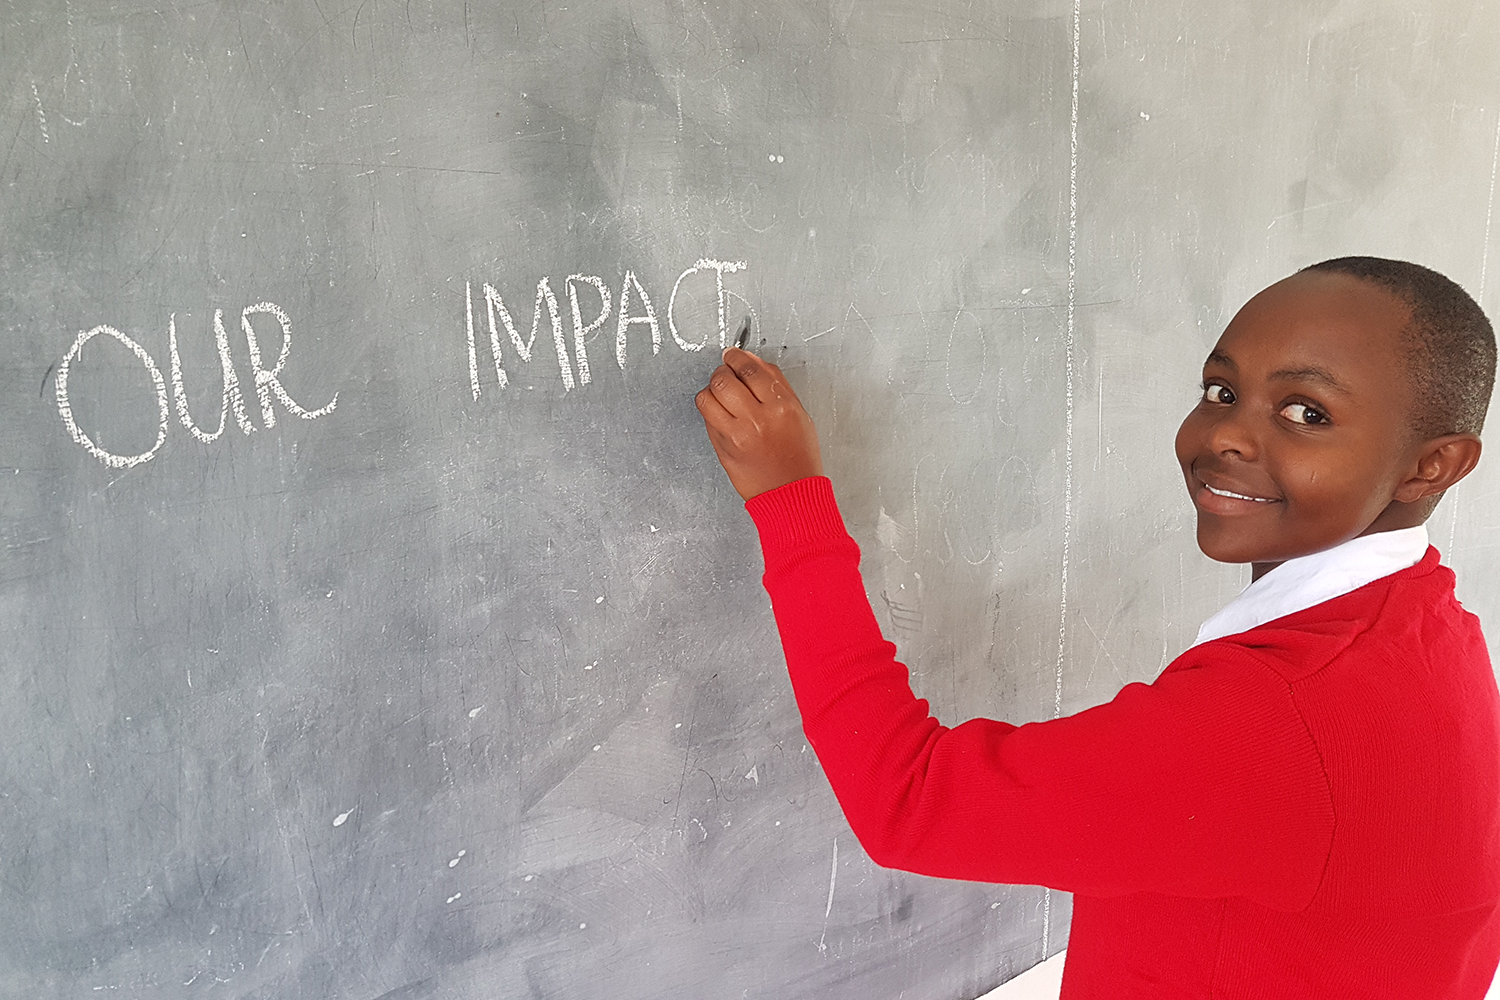 OUR IMPACT